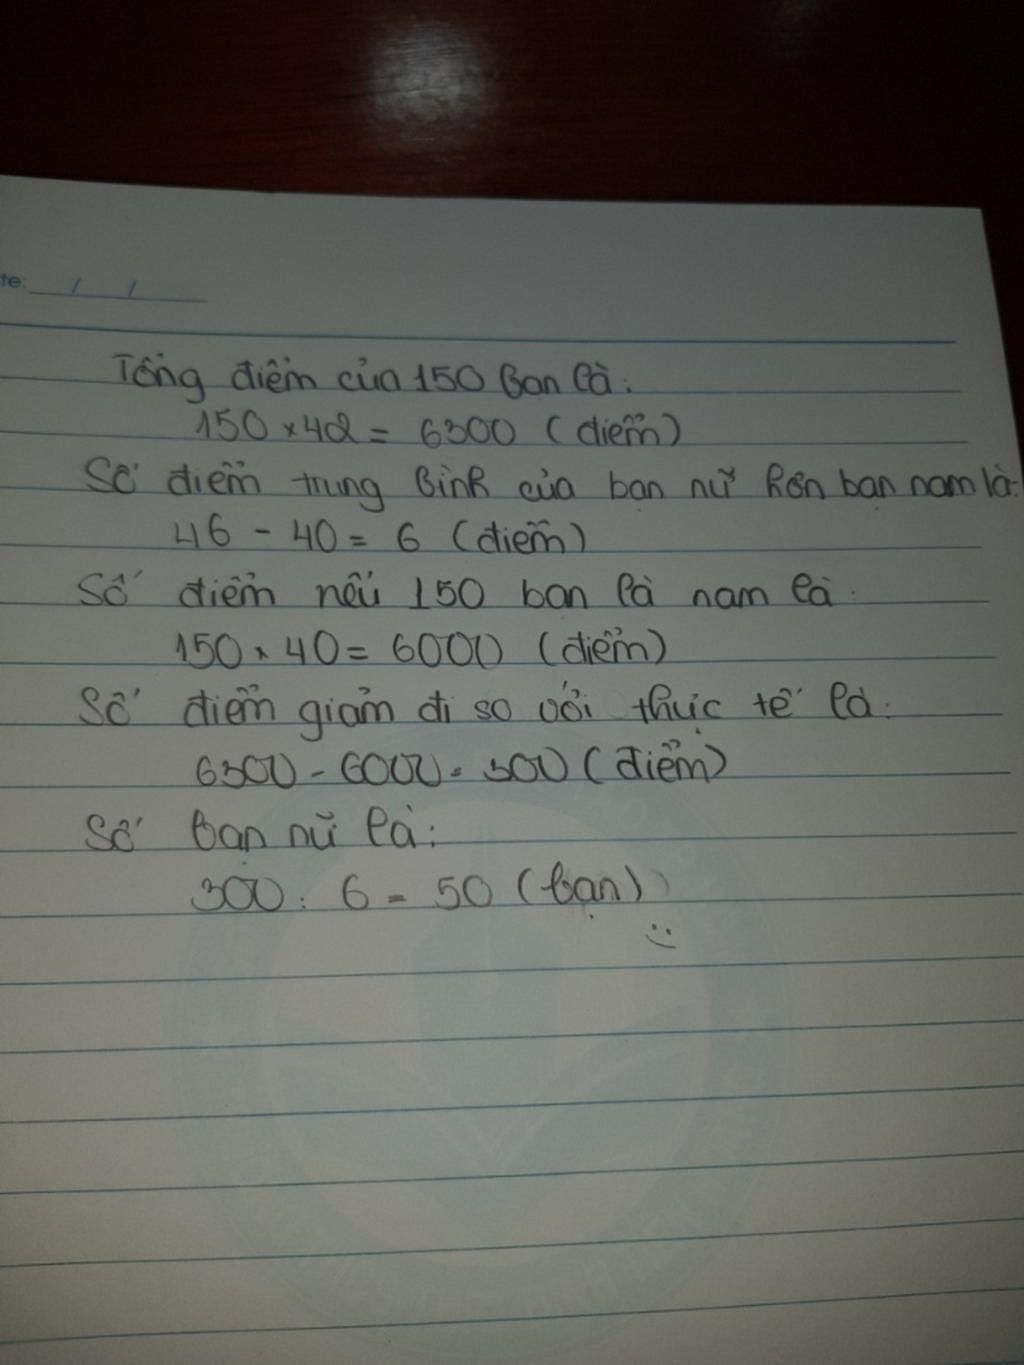 te: / /
Tổng điểm của 150 bạn là:
150 × 42 = 6300 (điểm)
Số điểm trung bình của bạn nữ hơn bạn nam là:
46 - 40 = 6 (điểm)
Số điểm nếu 150 bạn là nam là:
150 × 40 = 6000 (điểm)
Số điểm giảm đi so với thực tế là:
6300 - 6000 = 300 (điểm)
Số bạn nữ là:
300 : 6 = 50 (bạn)